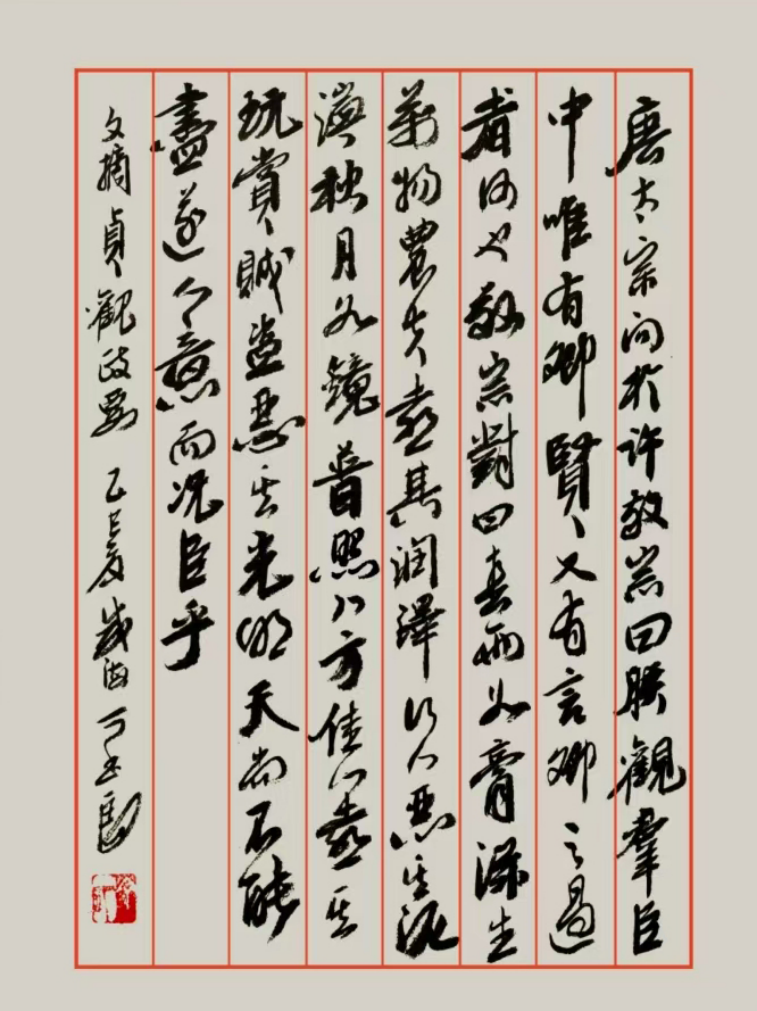 唐太宗问於许敬宗曰朕觀羣臣
中唯有卿賢又有言卿之過
者何也敬宗對曰春雨如膏滋生
萬物農夫喜其润泽行人恶其泥
濘秋月如鏡普照八方佳人喜其
玩賞賊盗恶其光明天尚不能
盡遂人意而况臣乎
文摘貞觀政要 乙巳夏